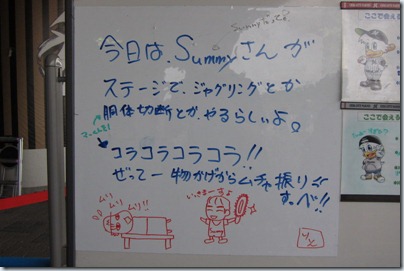 今日は、Summyさんが
ステージで、ジャグリングとか
胴体切断とか、やるらしいよ。
コラコラコラコラ!!
ぜってー物かげからムチャ振り
すっべ!!
ムリ
ムリ
ムリ!!
いっきまーすよ
ここで会える
ここで会える